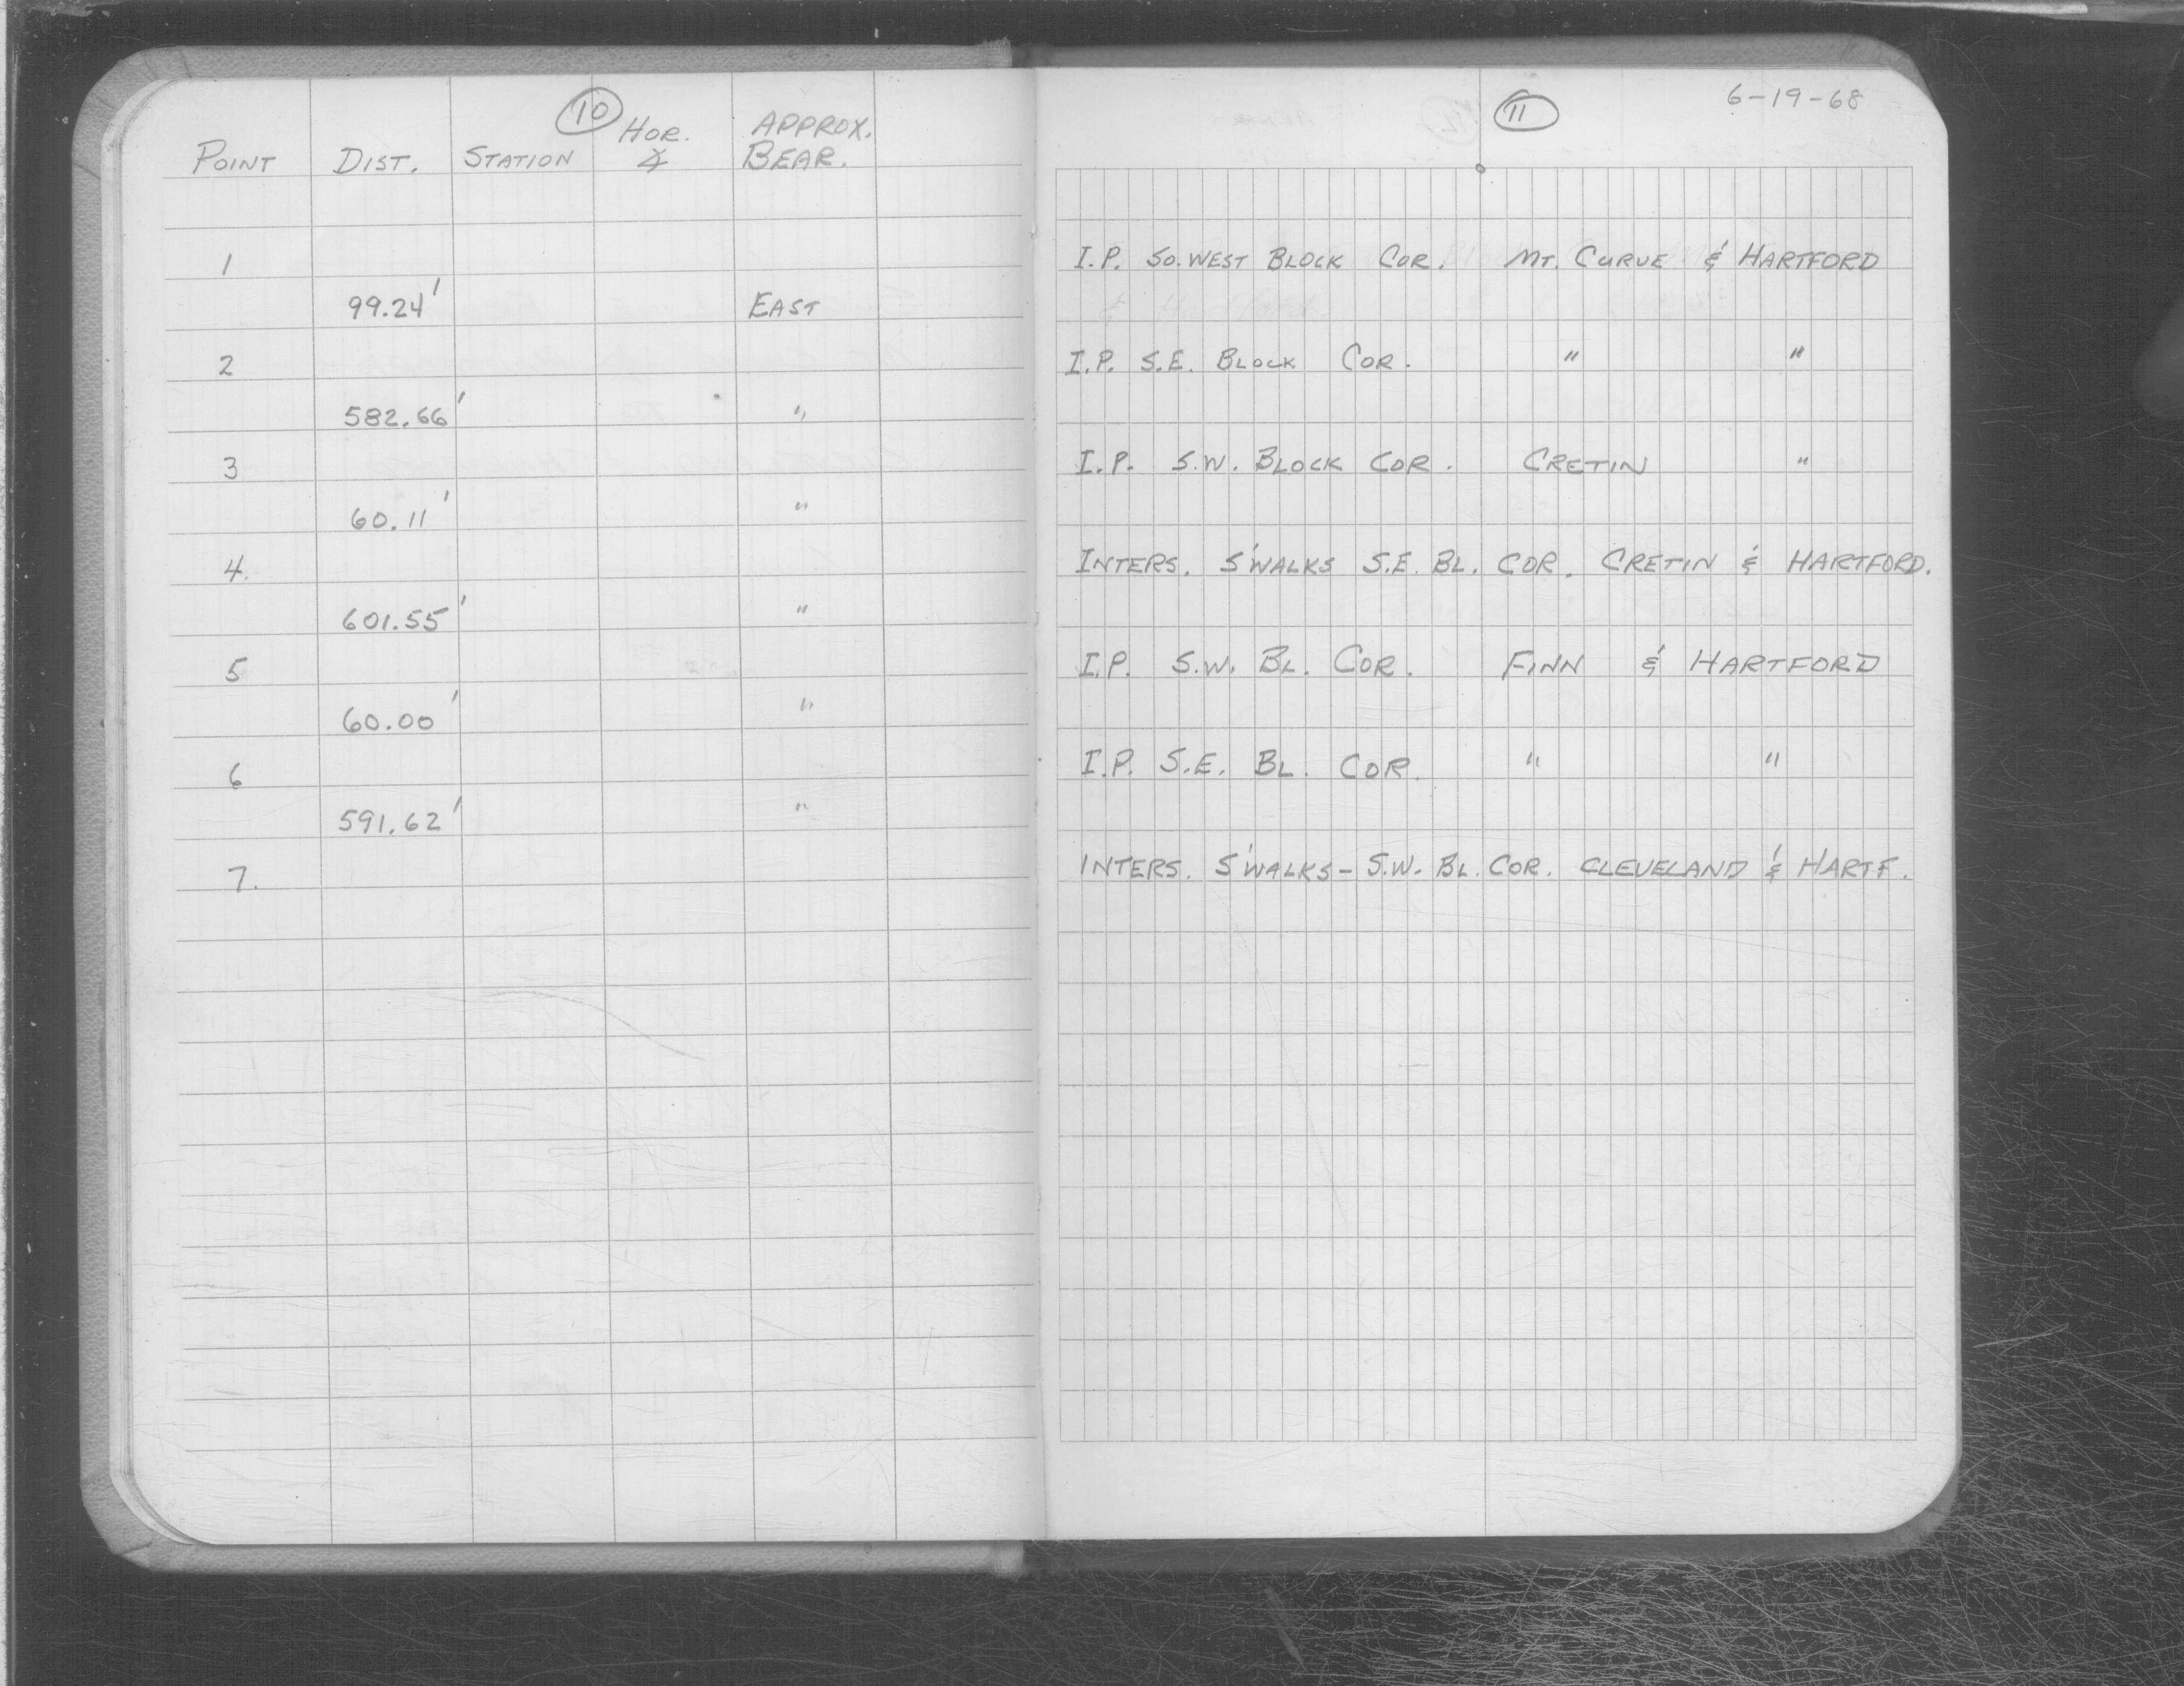 10
POINT DIST. STATION HOR. ∡ APPROX. BEAR.
1
99.24' EAST
2
582.66' "
3
60.11' "
4.
601.55' "
5
60.00' "
6
591.62' "
7.
11 6-19-68
I.P. SO. WEST BLOCK COR. MT. CURVE & HARTFORD
I.P. S.E. BLOCK COR. " "
I.P. S.W. BLOCK COR. CRETIN "
INTERS. S'WALKS S.E. BL. COR. CRETIN & HARTFORD.
I.P. S.W. BL. COR. FINN & HARTFORD
I.P. S.E. BL. COR. " "
INTERS. S'WALKS - S.W. BL. COR. CLEVELAND & HARTF.